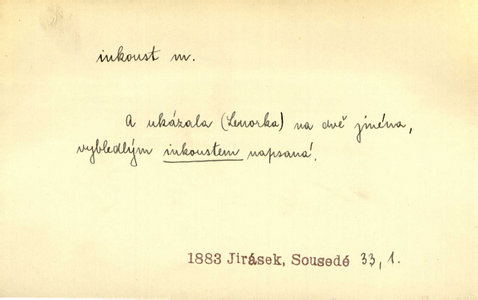 inkoust m.
A ukázala (Lenorka) na dvě jména,
vybledlým inkoustem napsaná.
1883 Jirásek, Sousedé 33, 1.